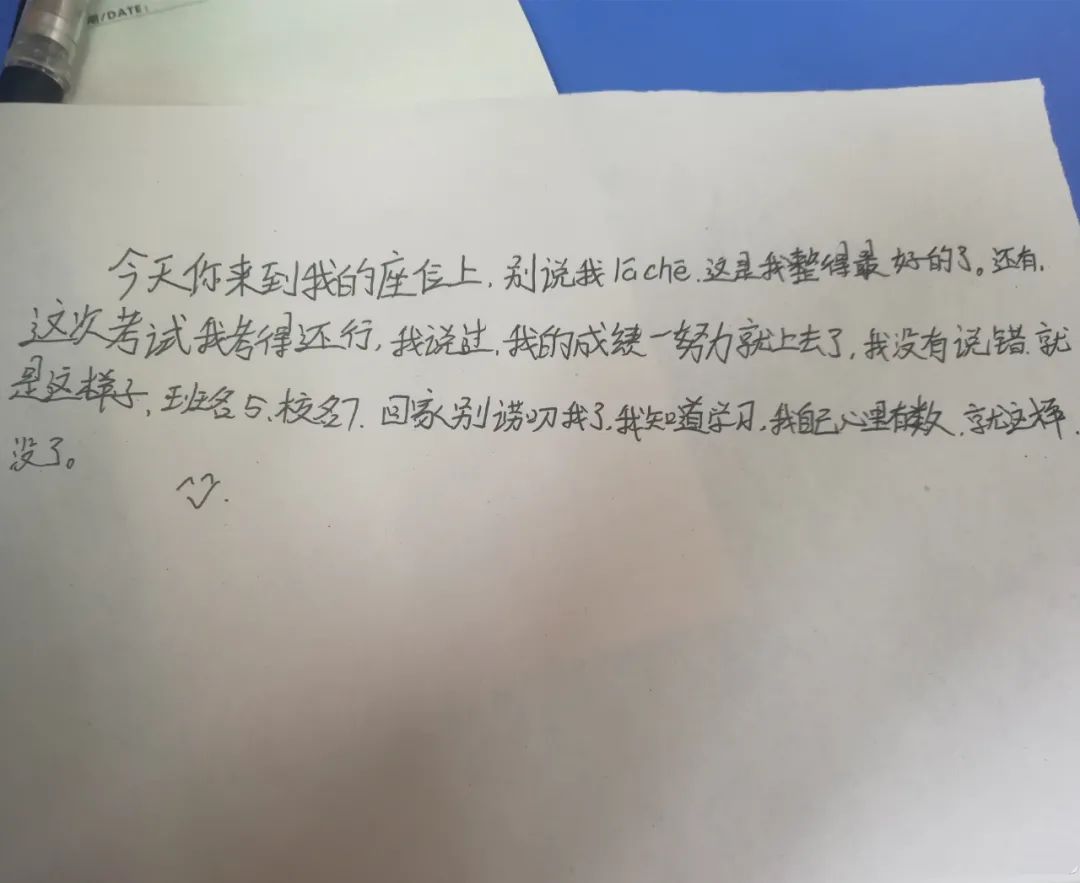 /DATE:
今天你来到我的座位上,别说我lāchē.这是我整得最好的了。还有,
这次考试我考得还行,我说过,我的成绩一努力就上去了,我没有说错.就
是这样子,班名5,校名7.回家别谤叨我了,我知道学习,我自己心里有数.就这样.
没了。